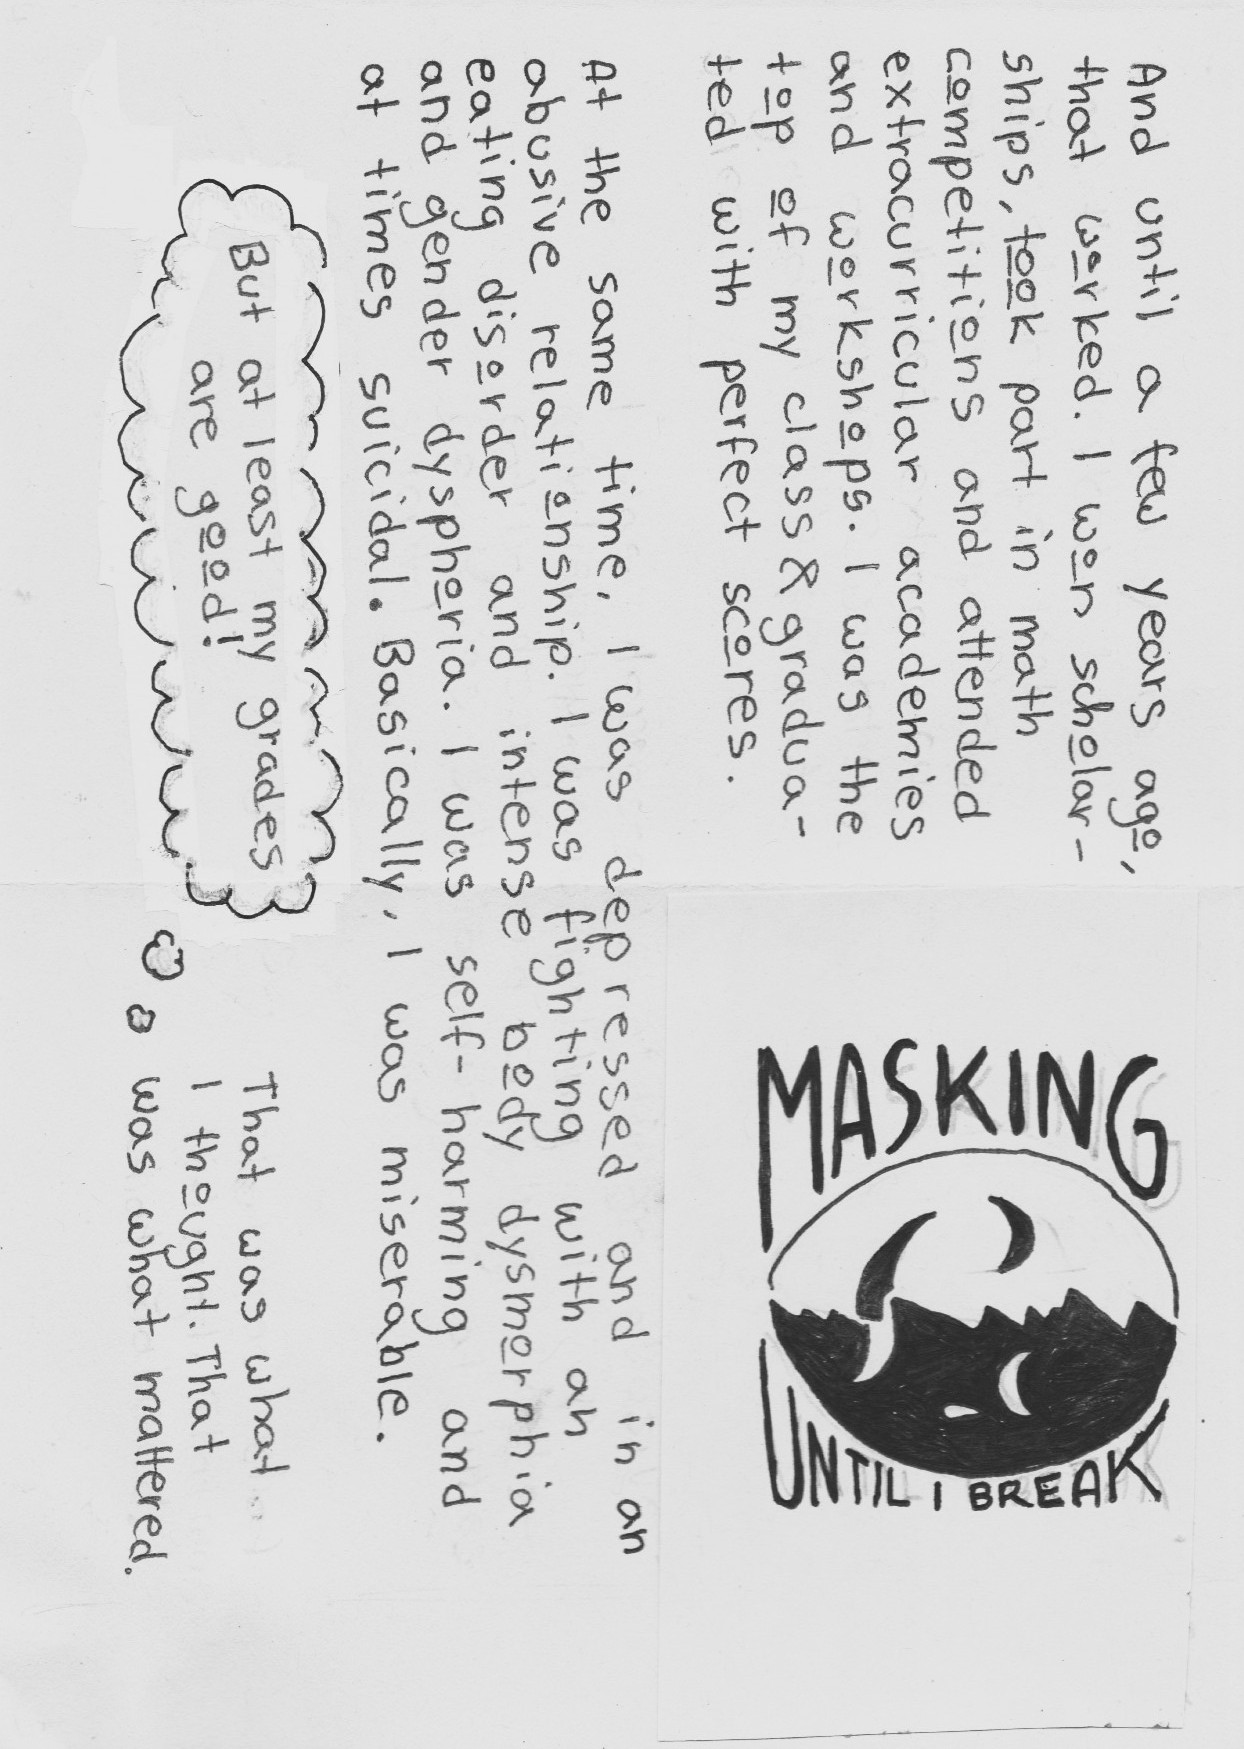 And until a few years ago,
that worked. I won scholar-
ships, took part in math
competitions and attended
extracurricular academies
and workshops. I was the
top of my class & gradua-
ted with perfect scores.
MASKING
UNTIL I BREAK
At the same time, I was depressed and in an
abusive relationship. I was fighting with an
eating disorder and intense body dysmorphia
and gender dysphoria. I was self-harming and
at times suicidal. Basically, I was miserable.
But at least my grades
are good!
That was what
I thought. That
was what mattered.